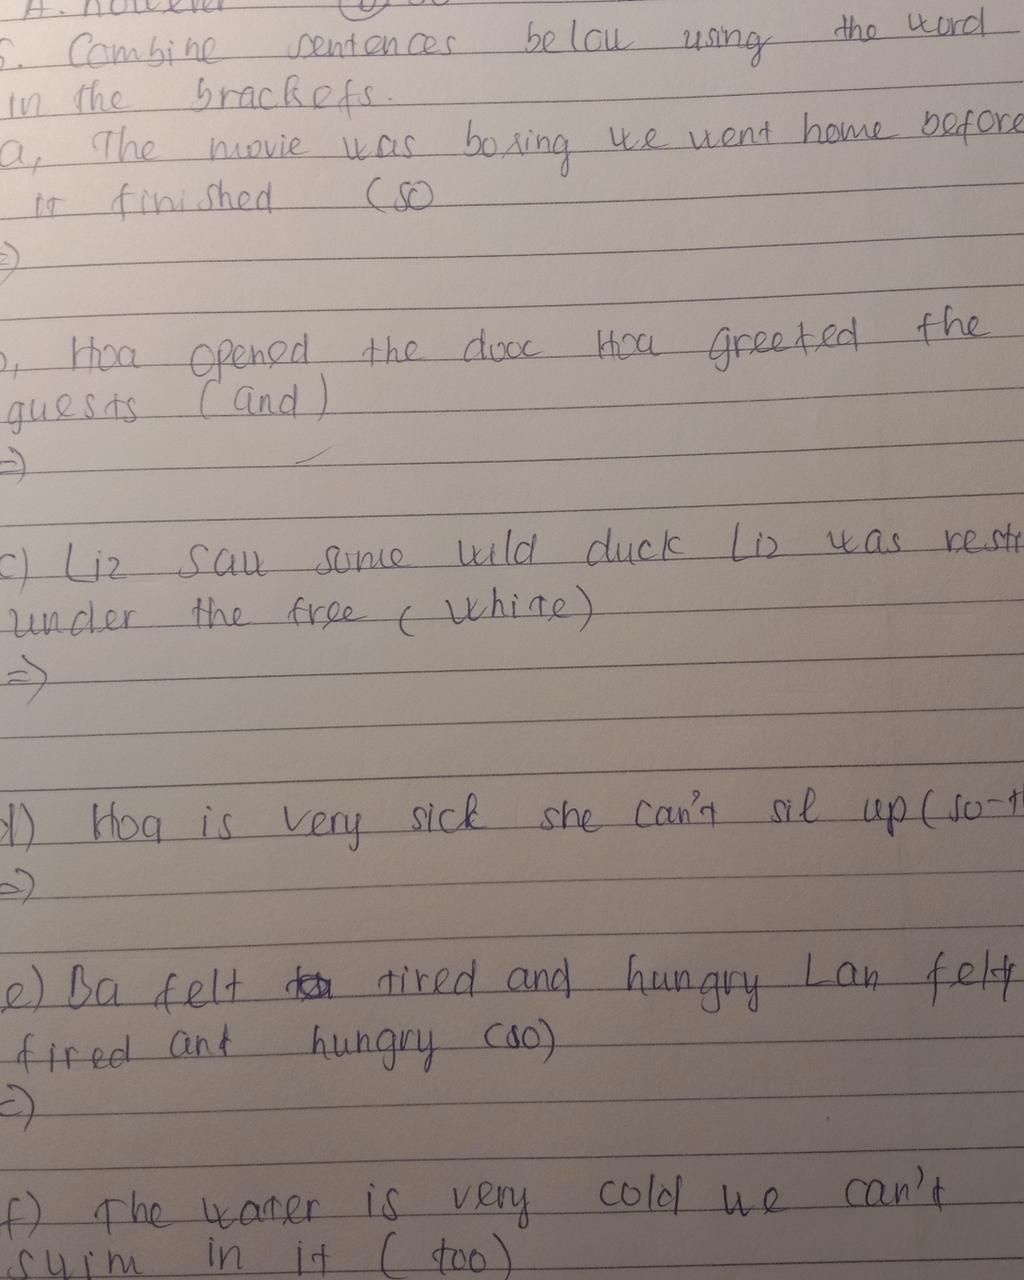 A. however
5. Combine sentences below using the word
in the brackets.
a, The movie was boring we went home before
it finished (so
=)
b, Hoa opened the door Hoa greeted the
guests (and)
=)
c) Liz saw some wild duck Liz was resti
under the free (white)
=)
d) Hoa is very sick she can't sil up (so-th
=)
e) Ba felt tired and hungry Lan felt
fired and hungry (so)
=)
f) The water is very cold we can't
swim in it (too)